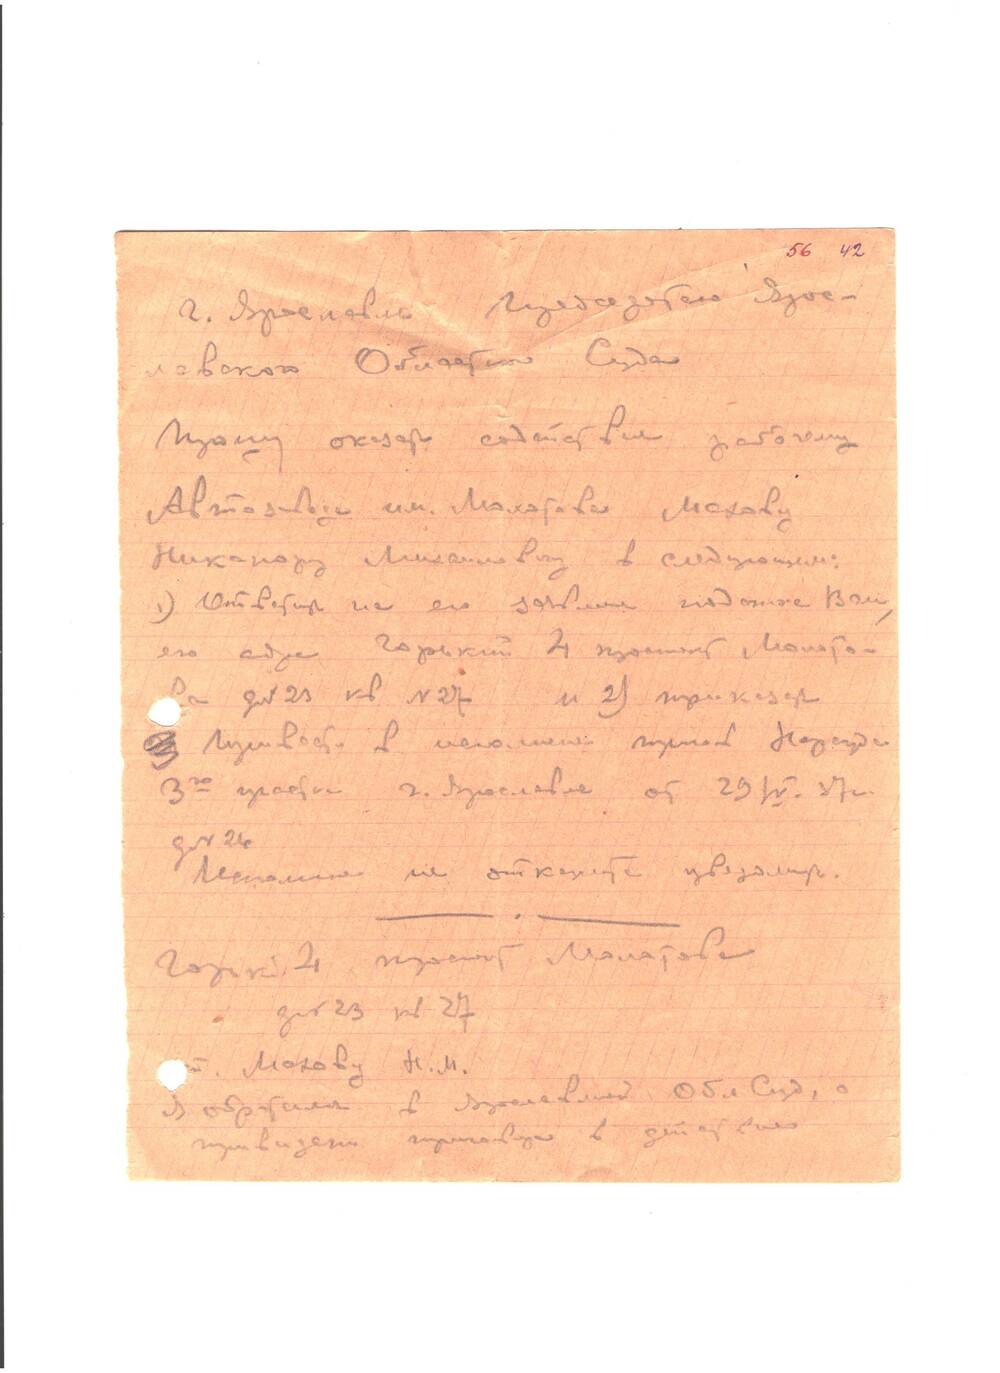 56 42
г. Ярославль Председателю Яро-
славского Областно Суда
Прошу оказать содействие рабочему
Автозавода им. Молотова Махову
Никанору Михаиловичу в следующем:
1) Ответить на его заявление поданное Вам,
его адре Горький 4 проспект Молото-
ва д№23 кв №27 и 2) приказать
Привести в исполнение Нарсуда
3го участка г. Ярославля от 29/IV. 37г.
д№ 24
не откажите уведомить.
Горький 4 проспект Молотова
д№23 кв 27
т. Махову Н.М.
Я обратился в Ярославский Обл Суд, о
приведени приговора в действие